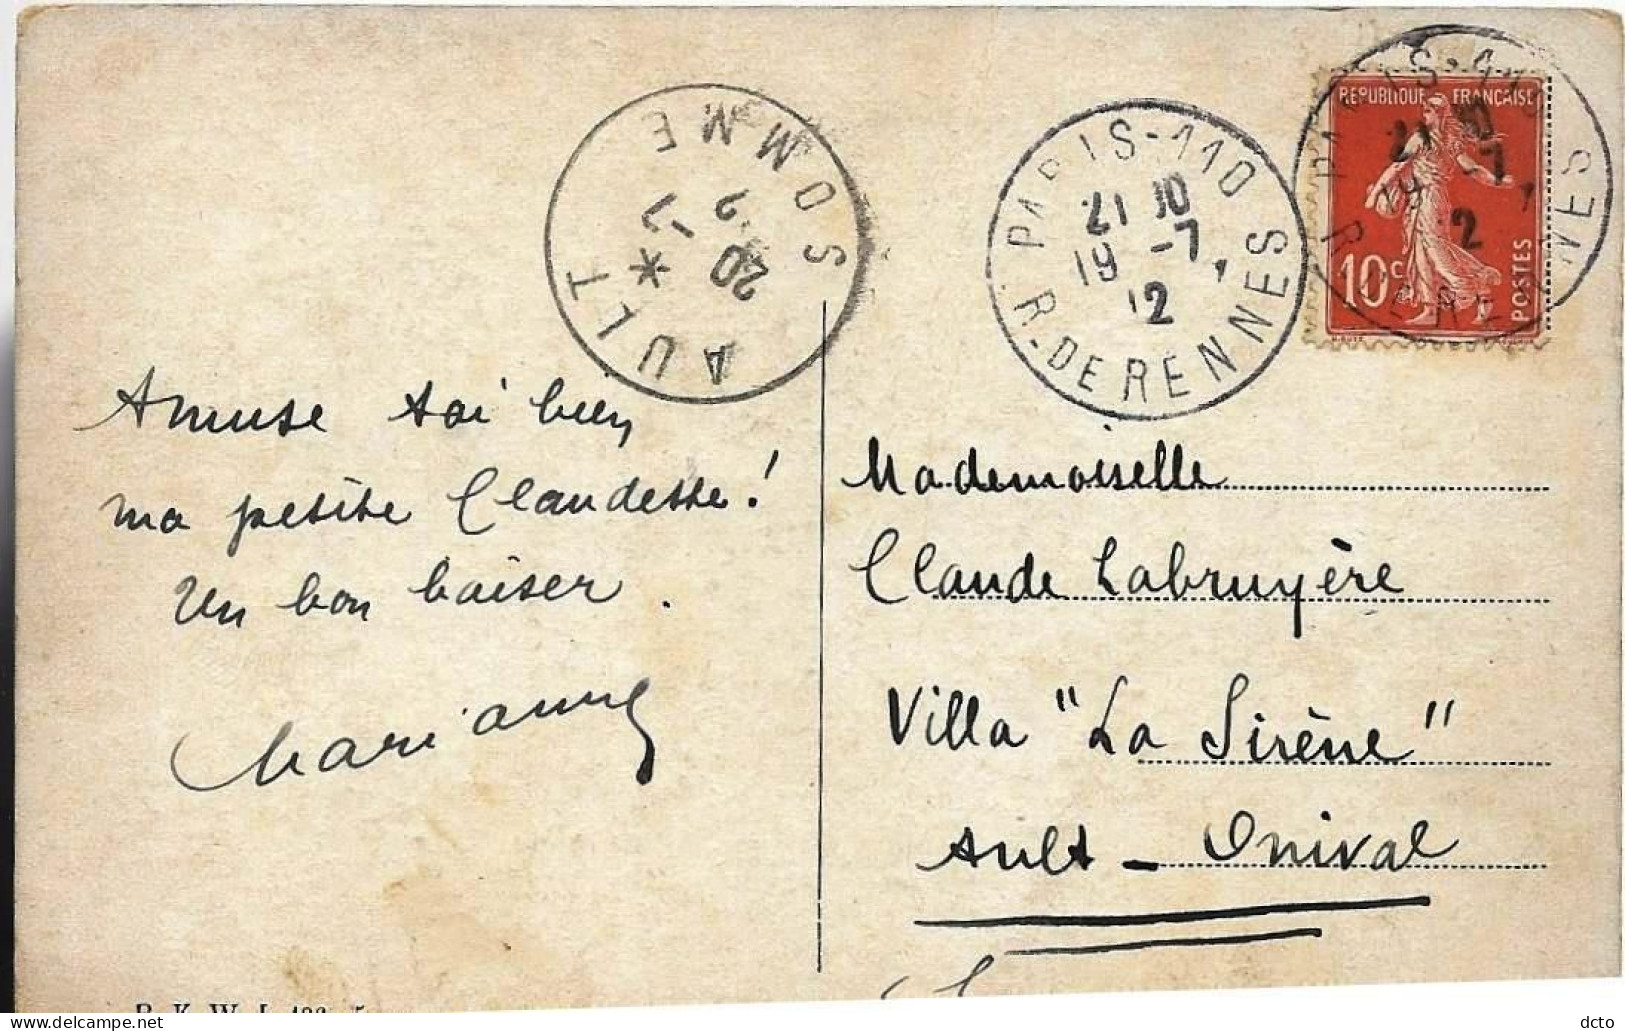 Amuse toi bien
ma petite Claudette !
Un bon baiser.
Marianne
AULT
SOMME
20
PARIS-110
21 10
19 -7
12
R. DE RENNES
REPUBLIQUE FRANÇAISE
10c
POSTES
PARIS-110
21 10
19 -7
12
R. DE RENNES
Mademoiselle
Claude Labruyère
Villa "La Sirène"
Ault - Onival
dcto